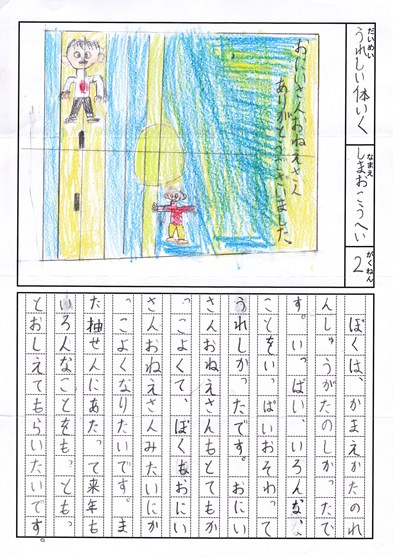 だいめい
うれしい体いく
なまえ
しまおこうへい
がくねん
2
おにいさんおねえさん
ありがとうございました
ぼくは、かまえかたのれ
んしゅうがたのしかったで
す。いっぱい、いろんな、
ことをいっぱいおそわって
うれしかったです。おにい
さんおねえさんもとてもか
っこよくて、ぼくもおにい
さんおねえさんみたいにか
っこよくなりたいです。ま
た抽せんにあたって来年も
いろんなことをもっともっ
とおしえてもらいたいです。